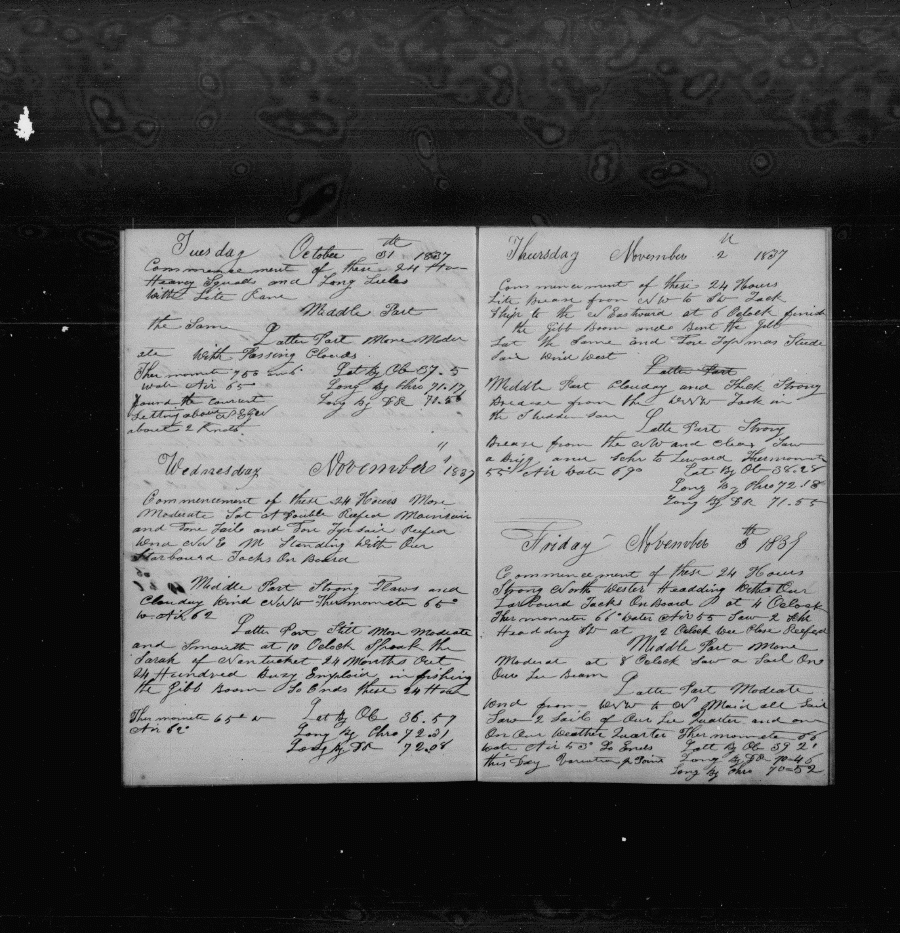 Tuesday October 31 th 1837
Commencement of these 24 Ho
Heavey Squals and Long
With Lite Rane
Middle Part
the Same
Latter Part More Moder
ate With Passing Clouds
Ther mometer 75 Lat By Ob 37. 5
Water Air 65 Long By Chro 71.17
found the current Long By DR 70.56
Setting about
about 2 Knots
Wednesday November 1" 1837
Commencement of these 24 Hours More
Moderate Sat at Double Reefed Mainsail
and Fore Sails and Fore Reefed
Wind NW Standing With Our
Starboard Tacks On Board
Middle Part Strong Flaws and
Clouday Wind NNW Thermometer 65°
Air 62
Latter Part Still More Moderate
and Smooth at 10 Oclock Speak the
Sarah of Nantucket 24 Months Out
24 Hundred Busy Emploid in fishing
the Gibb Boom So Ends these 24 Hour
Ther mometer 65° W Lat By Ob 36.57
Air 62° Long By Chro 72.31
Long By DR 72.08
Thursday November 2 th 1837
Commencement of these 24 Hours
Lite Brease from NW to SW Tack
Ship to the N Eastward at 6 Oclock finish
the Gibb Boom and Bent the Gibb
Sat the Same and Fore Topmas Stude
Sail Wind West
Latte Part
Middle Part Clouday and Thick Strong
Brease from the WNW Took in
the Studden Sail
Latte Part Strong
Brease from the NW and Clear Saw
a Brigg and Schr to Leward Thermometer
55° Air Water 69° Lat By Ob 38.28
Long By Chro 72.18
Long By DR 71.55
Friday November 3 th 1837
Commencement of these 24 Hours
Strong North Wester Headding With Our
Larbourd Tacks On Board at 4 Oclock
Ther mometer 66° Water Air 55 Saw 2 Schr
Headding SW at 2 Oclock Wee Close Reefed
Middle Part More
Moderat at 8 Oclock Saw a Sail One
Oure Lee Beam
Latte Part Moderate
Wind from WNW to N Maid all Sail
Saw 2 Sail of Our Lee Quarter and one
On Our Weather Quarter Thermometer 66
Water Air 53° So Ends Latt By Ob 39 2'
this Day Variation Point Long By DR 70-46
Long By Chro 70-52